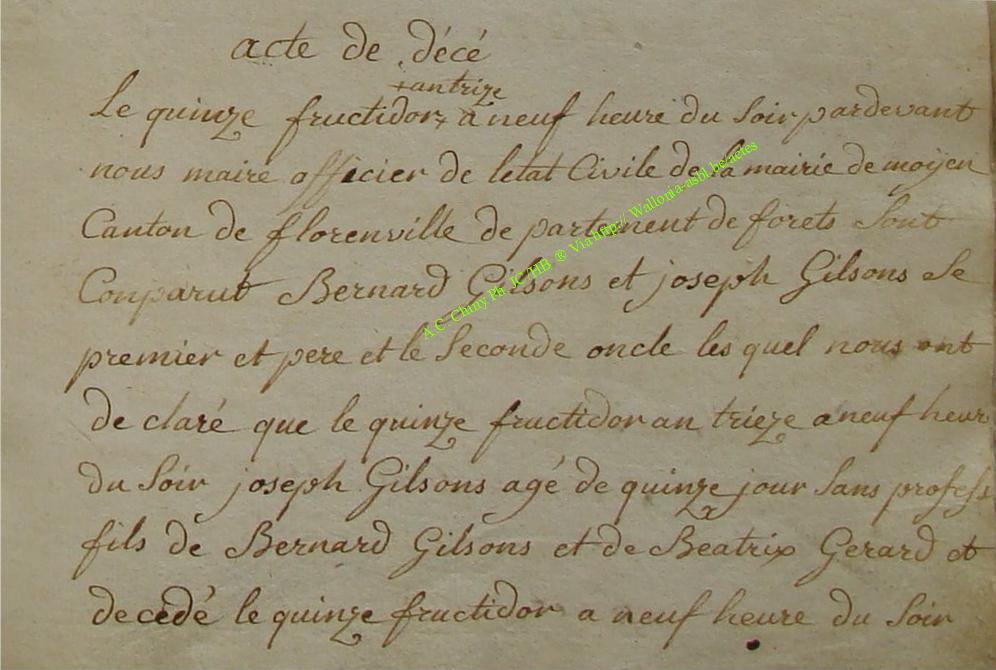 acte de décé
+antrize
Le quinze fructidor+ a neuf heure du Soir pardevant
nous maire officier de letat Civile de la mairie de moÿen
Canton de florenville de partement de forets Sont
Conparut Bernard Gilsons et joseph Gilsons Le
premier et pere et le Seconde oncle les quel nous ont
de claré que le quinze fructidor an trieze a neuf heur
du Soir joseph Gilsons agé de quinze jour Sans profess
fils de Bernard Gilsons et de Beatrix Gerard et
decedé le quinze fructidor a neuf heure du Soir
A.C. Chiny Ph. JC HB ® Via http:// Wallonia-asbl.be/actes